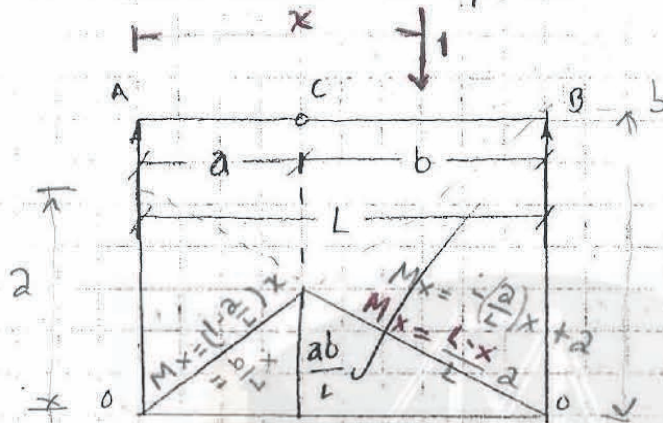 x
1
A C B b
a b
L
a
Mx = (1 - a/L) x
b/L x
ab/L
Mx = -(a/L) x + a
Mx = L-x/L a
0 0